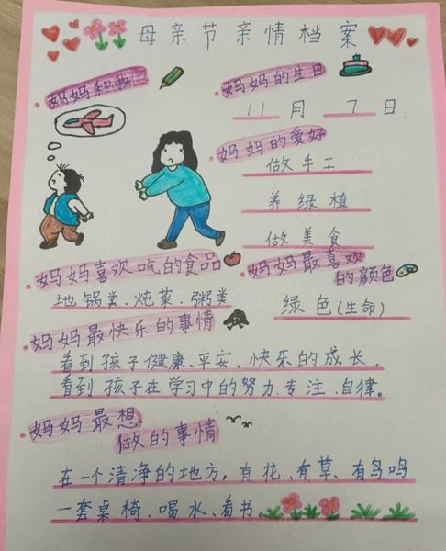 母亲节亲情档案
妈妈和我
妈妈的生日
11月7日
妈妈的爱好
做手工
养绿植
做美食
妈妈喜欢吃的食品
地锅类、炖菜、粥类
妈妈最喜欢
的颜色
绿色(生命)
妈妈最快乐的事情
看到孩子健康、平安、快乐的成长,
看到孩子在学习中的努力、专注、自律。
妈妈最想
做的事情
在一个清净的地方,有花、有草、有鸟鸣
一套桌椅、喝水、看书。